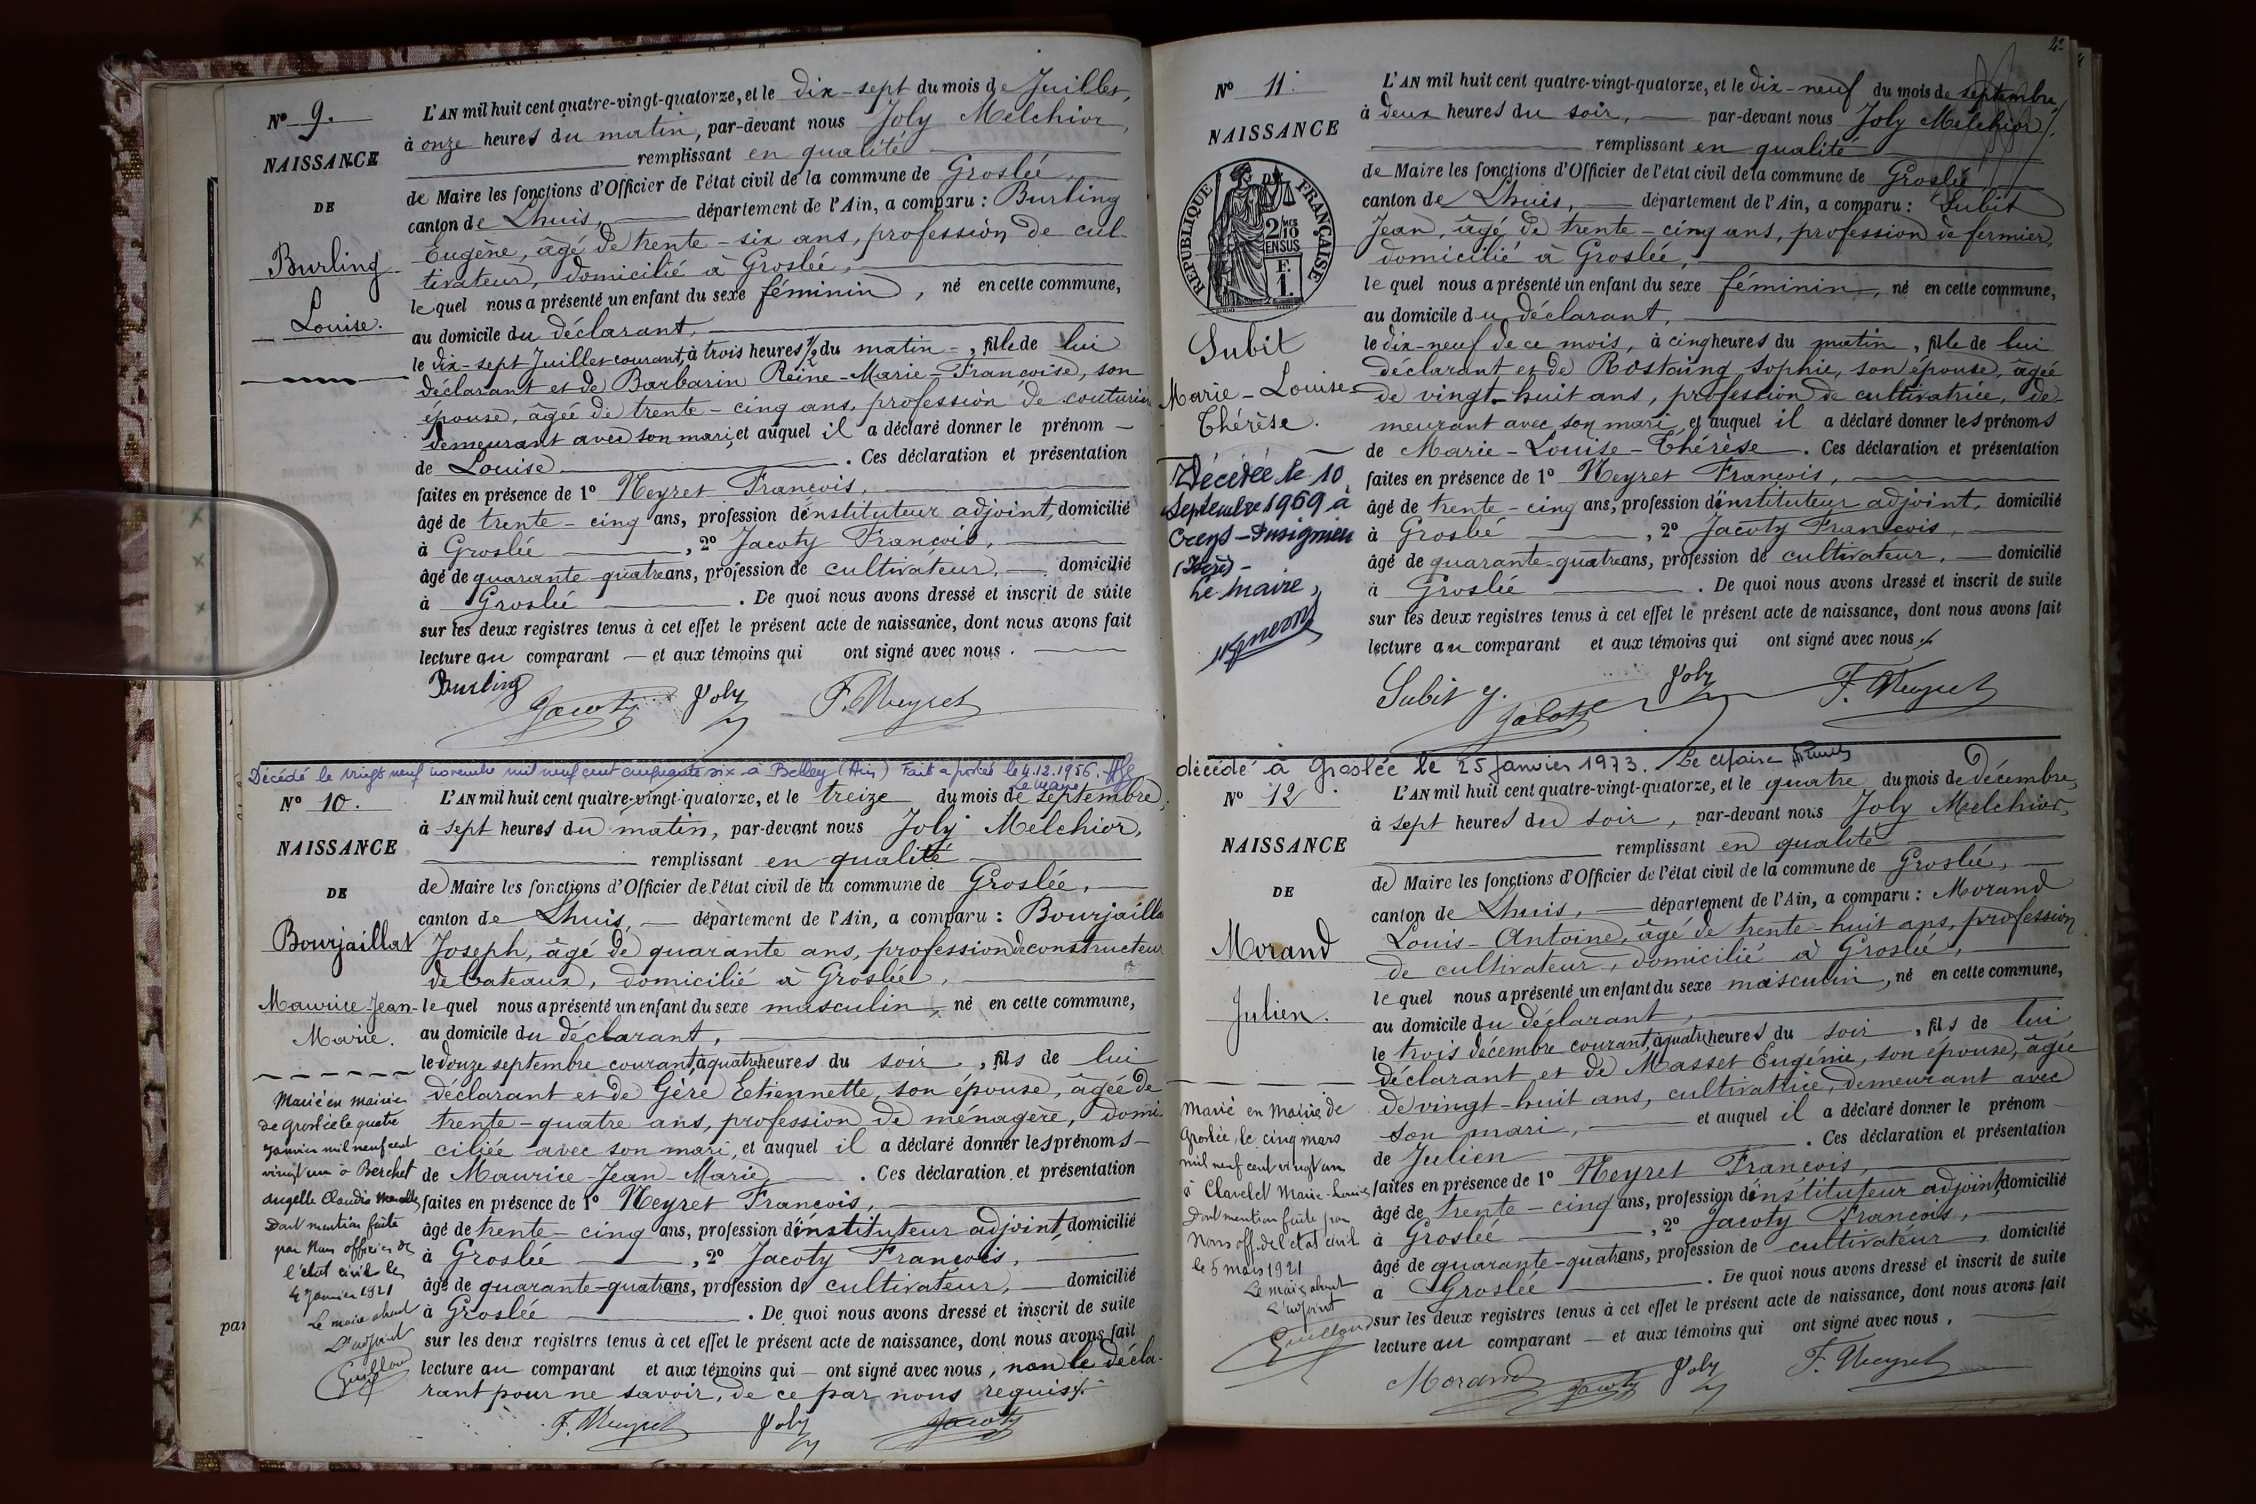 Nº 9.
NAISSANCE
DE
Burling
Louise.
L'AN mil huit cent quatre-vingt-quatorze, et le dix-sept du mois de Juillet,
à onze heures du matin, par-devant nous Joly Melchior,
remplissant en qualité
de Maire les fonctions d'Officier de l'état civil de la commune de Groslée,
canton de Lhuis, département de l'Ain, a comparu : Burling
Eugène, âgé de trente-six ans, profession de cul-
tivateur, domicilié à Groslée,
lequel nous a présenté un enfant du sexe féminin, né en cette commune,
au domicile du déclarant,
le dix-sept Juillet courant, à trois heures ½ du matin, fille de lui
déclarant et de Barbarin Reine-Marie-Françoise, son
épouse, âgée de trente-cinq ans, profession de couturière
demeurant avec son mari, et auquel il a déclaré donner le prénom
de Louise. Ces déclaration et présentation
faites en présence de 1º Neyret François,
âgé de trente-cinq ans, profession d'instituteur adjoint, domicilié
à Groslée, 2º Jacoty François,
âgé de quarante-quatre ans, profession de cultivateur, domicilié
à Groslée. De quoi nous avons dressé et inscrit de suite
sur les deux registres tenus à cet effet le présent acte de naissance, dont nous avons fait
lecture au comparant et aux témoins qui ont signé avec nous.
Burling Jacoty Joly F. Neyret
Décédé le vingt neuf novembre mil neuf cent cinquante six à Belley (Ain) Fait à Groslée le 4.12.1956.
Le Maire
Nº 10.
NAISSANCE
DE
Bourjaillat
Maurice-Jean-
Marie.
Marié en mairie
de Groslée le quatre
Janvier mil neuf cent
vingt un à Berchet
Angelle Claudia
Dont mention faite
par Nous officier de
l'état civil le
4 Janvier 1921
Le maire absent
L'adjoint
L'AN mil huit cent quatre-vingt-quatorze, et le treize du mois de septembre,
à sept heures du matin, par-devant nous Joly Melchior,
remplissant en qualité
de Maire les fonctions d'Officier de l'état civil de la commune de Groslée,
canton de Lhuis, département de l'Ain, a comparu : Bourjaillat
Joseph, âgé de quarante ans, profession de constructeur
de bateaux, domicilié à Groslée,
lequel nous a présenté un enfant du sexe masculin, né en cette commune,
au domicile du déclarant,
le douze septembre courant, à quatre heures du soir, fils de lui
déclarant et de Gère Etiennette, son épouse, âgée de
trente-quatre ans, profession de ménagère, domi-
ciliée avec son mari, et auquel il a déclaré donner les prénoms
de Maurice-Jean-Marie. Ces déclaration et présentation
faites en présence de 1º Neyret François,
âgé de trente-cinq ans, profession d'instituteur adjoint, domicilié
à Groslée, 2º Jacoty François,
âgé de quarante-quatre ans, profession de cultivateur, domicilié
à Groslée. De quoi nous avons dressé et inscrit de suite
sur les deux registres tenus à cet effet le présent acte de naissance, dont nous avons fait
lecture au comparant et aux témoins qui ont signé avec nous, non le décla-
rant pour ne savoir, de ce par nous requis.
F. Neyret Joly Jacoty
par
Nº 11.
NAISSANCE
RÉPUBLIQUE FRANÇAISE
2/10 EN SUS
F. 1.
Subit
Marie-Louise-
Thérèse.
Décédée le 10
Septembre 1969 à
Creys-Pusignieu
(Isère)-
Le Maire,
L'AN mil huit cent quatre-vingt-quatorze, et le dix-neuf du mois de septembre,
à deux heures du soir, par-devant nous Joly Melchior,
remplissant en qualité
de Maire les fonctions d'Officier de l'état civil de la commune de Groslée
canton de Lhuis, département de l'Ain, a comparu : Subit
Jean, âgé de trente-cinq ans, profession de fermier,
domicilié à Groslée,
lequel nous a présenté un enfant du sexe féminin, né en cette commune,
au domicile du déclarant,
le dix-neuf de ce mois, à cinq heures du matin, fille de lui
déclarant et de Rostaing Sophie, son épouse, âgée
de vingt-huit ans, profession de cultivatrice, de-
meurant avec son mari, et auquel il a déclaré donner les prénoms
de Marie-Louise-Thérèse. Ces déclaration et présentation
faites en présence de 1º Neyret François,
âgé de trente-cinq ans, profession d'instituteur adjoint, domicilié
à Groslée, 2º Jacoty François,
âgé de quarante-quatre ans, profession de cultivateur, domicilié
à Groslée. De quoi nous avons dressé et inscrit de suite
sur les deux registres tenus à cet effet le présent acte de naissance, dont nous avons fait
lecture au comparant et aux témoins qui ont signé avec nous.
Subit J. Jacoty Joly F. Neyret
décédé à Groslée le 25 Janvier 1973. Le Maire
Nº 12.
NAISSANCE
DE
Morand
Julien.
Marié en Mairie de
Groslée, le cinq mars
mil neuf cent vingt un
à Clavelet Marie-Louise
Dont mention faite par
Nous off. de l'état civil
le 5 mars 1921
Le maire absent
L'adjoint
L'AN mil huit cent quatre-vingt-quatorze, et le quatre du mois de décembre,
à sept heures du soir, par-devant nous Joly Melchior,
remplissant en qualité
de Maire les fonctions d'Officier de l'état civil de la commune de Groslée,
canton de Lhuis, département de l'Ain, a comparu : Morand
Louis-Antoine, âgé de trente-huit ans, profession
de cultivateur, domicilié à Groslée,
lequel nous a présenté un enfant du sexe masculin, né en cette commune,
au domicile du déclarant,
le trois décembre courant, à quatre heures du soir, fils de lui
déclarant et de Masset Eugénie, son épouse, âgée
de vingt-huit ans, cultivatrice, demeurant avec
son mari, et auquel il a déclaré donner le prénom
de Julien. Ces déclaration et présentation
faites en présence de 1º Neyret François,
âgé de trente-cinq ans, profession d'instituteur adjoint, domicilié
à Groslée, 2º Jacoty François,
âgé de quarante-quatre ans, profession de cultivateur, domicilié
à Groslée. De quoi nous avons dressé et inscrit de suite
sur les deux registres tenus à cet effet le présent acte de naissance, dont nous avons fait
lecture au comparant et aux témoins qui ont signé avec nous,
Morand Jacoty Joly F. Neyret